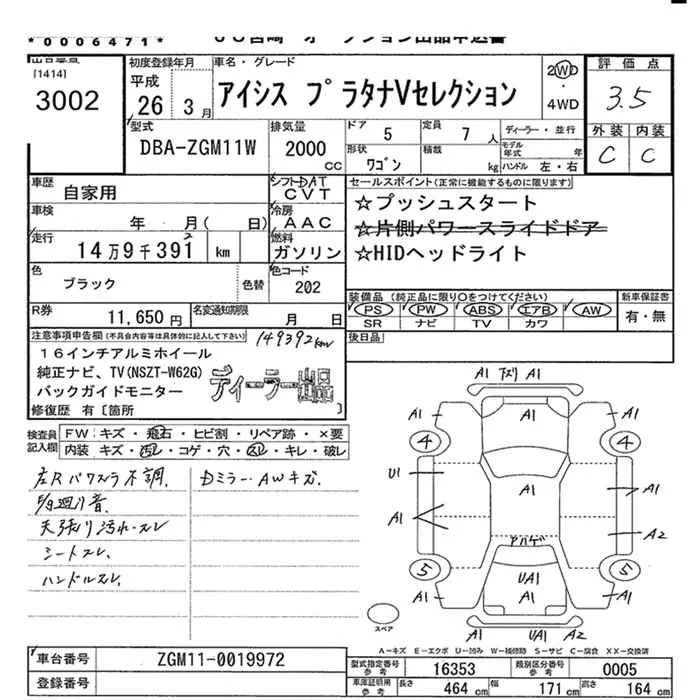 *0006471*
[1414]
3002
初度登録年月
平成
26 3月
車名・グレード
アイシス プラタナVセレクション
2WD
・
4WD
評価点
3.5
外装 内装
C C
型式
DBA-ZGM11W
排気量
2000
CC
ドア
5
定員
7 人
ディーラー・並行
モデル年式 年
形状
ワゴン
積載
kg
ハンドル 左・右
車歴
自家用
シフト DAT
CVT
セールスポイント(正常に機能するものに限ります)
☆プッシュスタート
☆片側パワースライドドア
☆HIDヘッドライト
車検
年 月( 日)
冷房
AAC
走行
14万9千391 km
2
燃料
ガソリン
色
ブラック
色替
色コード
202
装備品(純正品に限り○をつけてください)
PS PW ABS エアB AW
SR ナビ TV カワ
新車保証書
有・無
R券
11,650 円
名変通知期限
月 日
後日品
注意事項申告欄(不具合内容等は具体的に記入して下さい)
149392km
16インチアルミホイール
純正ナビ、TV(NSZT-W62G)
バックガイドモニター
ディーラー出品
修復歴 有〔箇所
検査員
記入欄
FW キズ・飛石・ヒビ割・リペア跡・×要
内装 キズ・汚レ・コゲ・穴・スレ・キレ・破レ
左Rパワスラ不調.
Dミラー・AWキズ.
天張り汚れ・スレ
シートスレ.
ハンドルスレ.
A1 A1
A1 A1 A1
4 4
U1
A1 A1
A1
アハゲ A2
5 5
UA1
A1 A1 A1
A1 UA1 A2
スペア
A-キズ E-エクボ U-凹み W-補修跡 S-サビ C-腐食 XX-交換済
車台番号
ZGM11-0019972
登録番号
型式指定番号
参考
16353
類別区分番号
参考
0005
車庫証明用
参考
長さ 464 cm
幅 171 cm
高さ 164 cm